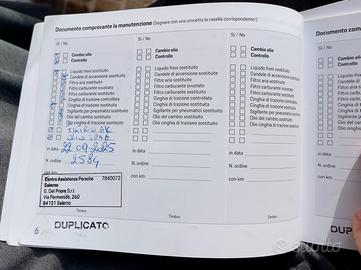 Documento comprovante la manutenzione (Segnare con una crocetta la casella corrispondente)
Documento compro
Si / No
Cambio olio
Controllo
Liquido freni sostituito
Candele di accensione sostituite
Filtro aria sostituito
Filtro carburante sostituito
Cinghia di trazione controllata
Cinghia di trazione sostituita
Sigillante per pneumatici sostituito
Olio del cambio sostituito
in data 22 09 2025
N. ordine 9584
con km
Centro Assistenza Porsche 7840072
Salerno
G. Del Priore S.r.l.
Via Parmenide, 260
84131 Salerno
Timbro
Si / No
Cambio olio
Controllo
Liquido freni sostituito
Candele di accensione sostituite
Filtro aria sostituito
Filtro carburante sostituito
Cinghia di trazione controllata
Cinghia di trazione sostituita
Sigillante per pneumatici sostituito
Olio del cambio sostituito
in data
N. ordine
con km
Timbro
Si / No
Cambio olio
Controllo
Liquido freni sostituito
Candele di accensione sostituite
Filtro aria sostituito
Filtro carburante sostituito
Cinghia di trazione controllata
Cinghia di trazione sostituita
Sigillante per pneumatici sostituito
Olio del cambio sostituito
in data
N. ordine
con km
Timbro
Si / No
in data
N. ordine
con km
6
DUPLICATO
DUPLICATO